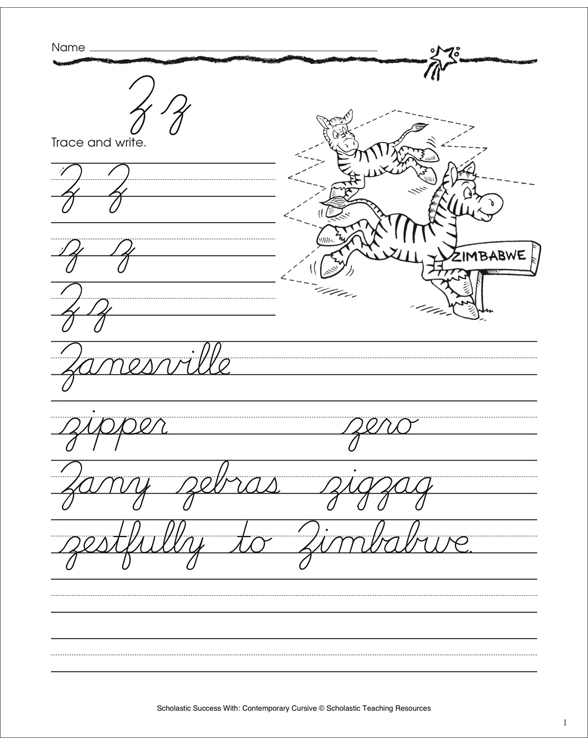 Name
Z z
Trace and write.
Z Z
z z
Z z
ZIMBABWE
Zanesville
zipper zero
Zany zebras zigzag
zestfully to Zimbabwe.
Scholastic Success With: Contemporary Cursive © Scholastic Teaching Resources
1